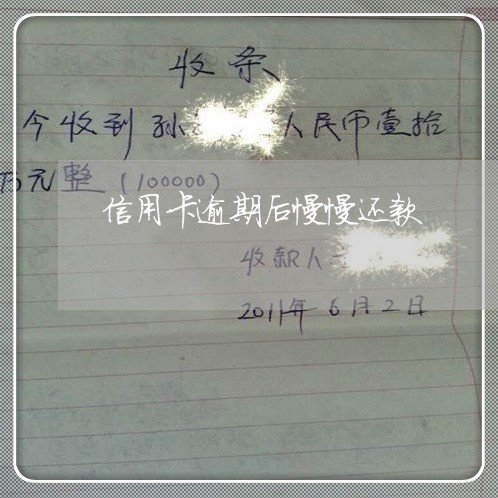 收条
今收到孙 人民币壹拾
万元整(100000)
信用卡逾期后慢慢还款
收款人
2011年6月2日